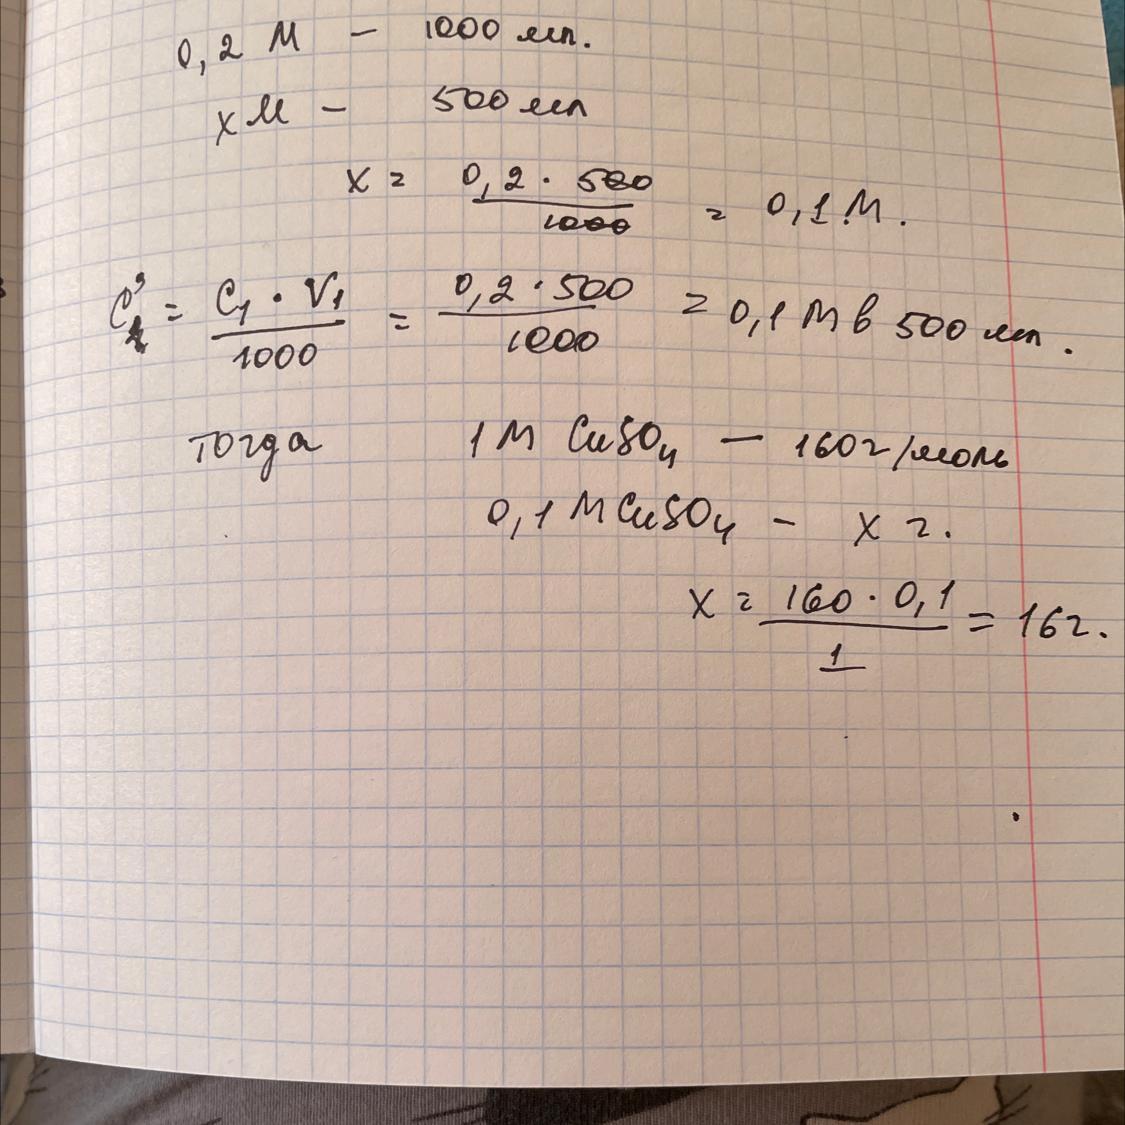 0,2 М – 1000 мл.
х М – 500 мл
х = 0,2 · 500 / 1000 = 0,1 М.
C' = C₁ · V₁ / 1000 = 0,2 · 500 / 1000 = 0,1 М в 500 мл.
тогда 1М CuSO₄ — 160 г/моль
0,1 М CuSO₄ – х г.
х = 160 · 0,1 / 1 = 16 г.